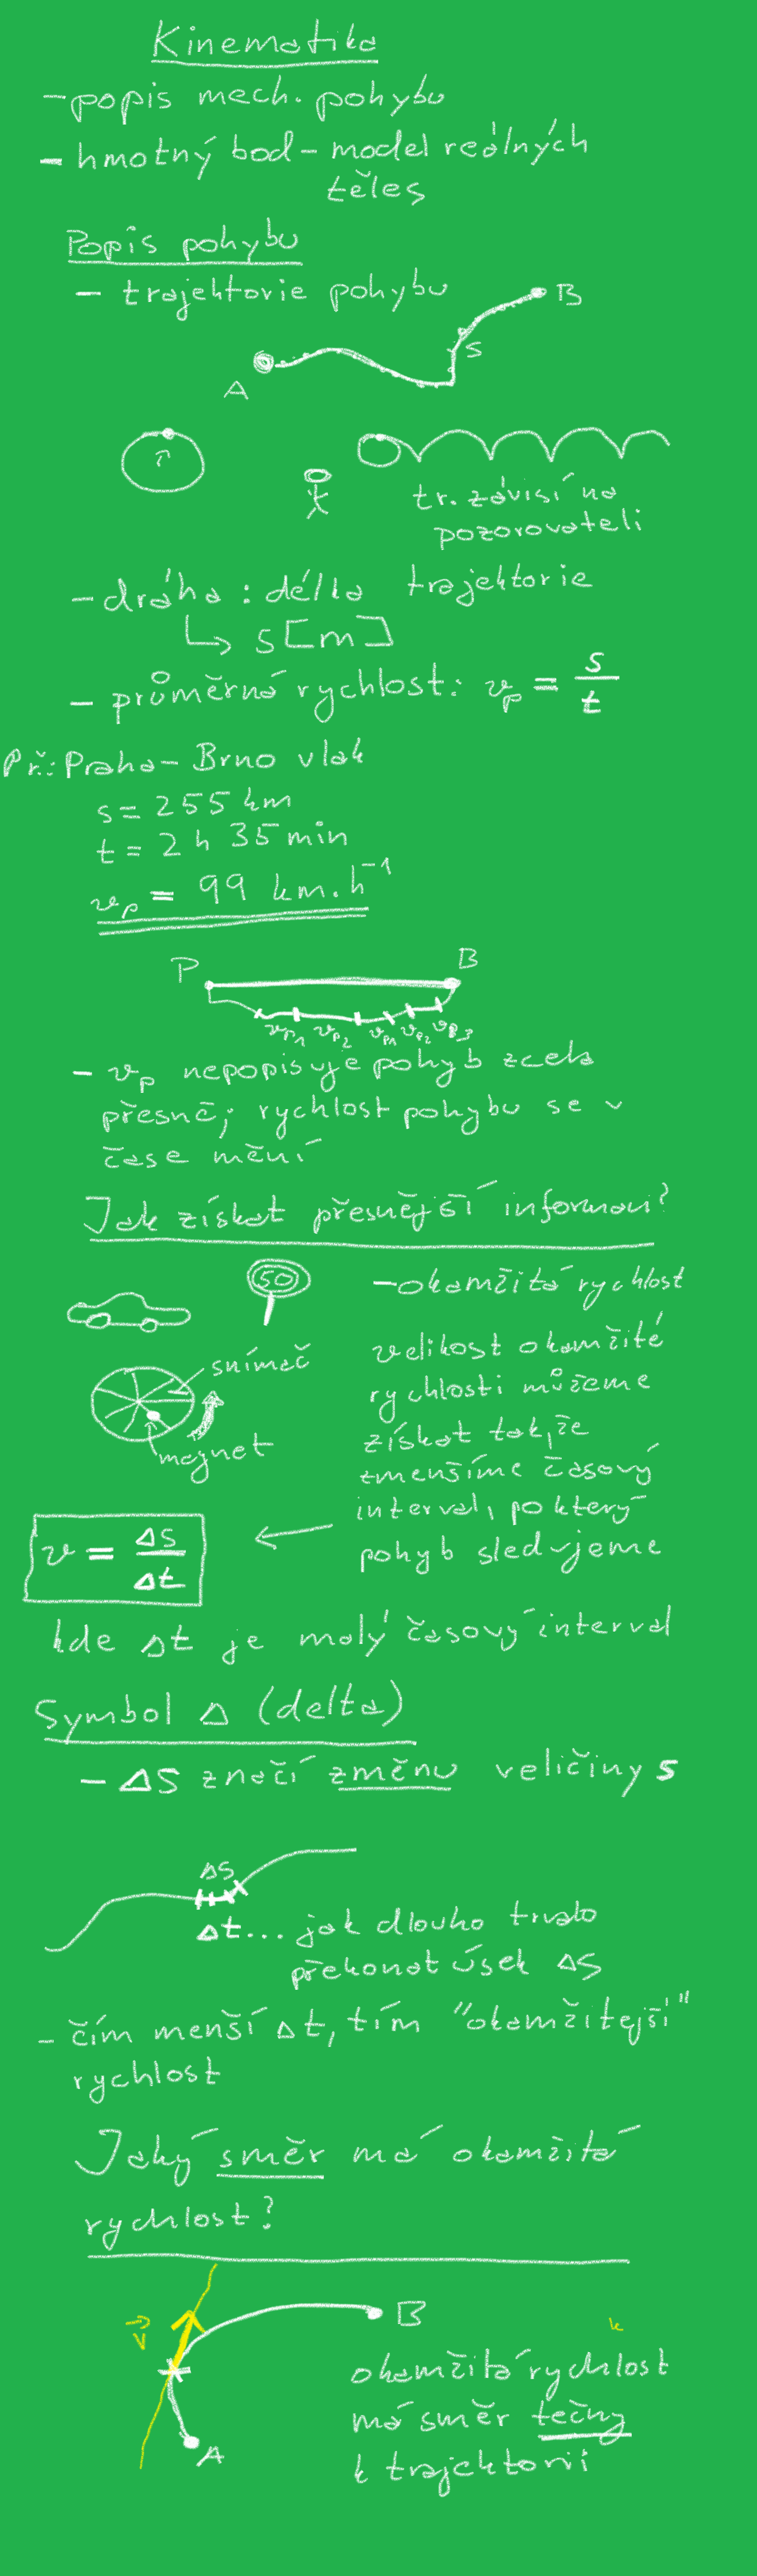 Kinematika
- popis mech. pohybu
- hmotný bod - model reálných
těles
Popis pohybu
- trajektorie pohybu
B
s
A
tr. závisí na
pozorovateli
- dráha: délka trajektorie
↳ s [m]
- průměrná rychlost: vₚ = s/t
Př.: Praha - Brno vlak
s = 255 km
t = 2 h 35 min
vₚ = 99 km.h⁻¹
P B
vₚ₁ vₚ₂ vₚ₁ vₚ₂ vₚ₃
- vₚ nepopisuje pohyb zcela
přesně; rychlost pohybu se v
čase mění
Jak získat přesnější informaci?
50
- okamžitá rychlost
velikost okamžité
rychlosti můžeme
získat tak, že
zmenšíme časový
interval, po který
pohyb sledujeme
snímač
magnet
v = Δs/Δt ←
kde Δt je malý časový interval
Symbol Δ (delta)
- Δs značí změnu veličiny s
Δs
Δt... jak dlouho trvalo
překonat úsek Δs
- čím menší Δt, tím "okamžitější"
rychlost
Jaký směr má okamžitá
rychlost?
v⃗
B
k
A
okamžitá rychlost
má směr tečny
k trajektorii